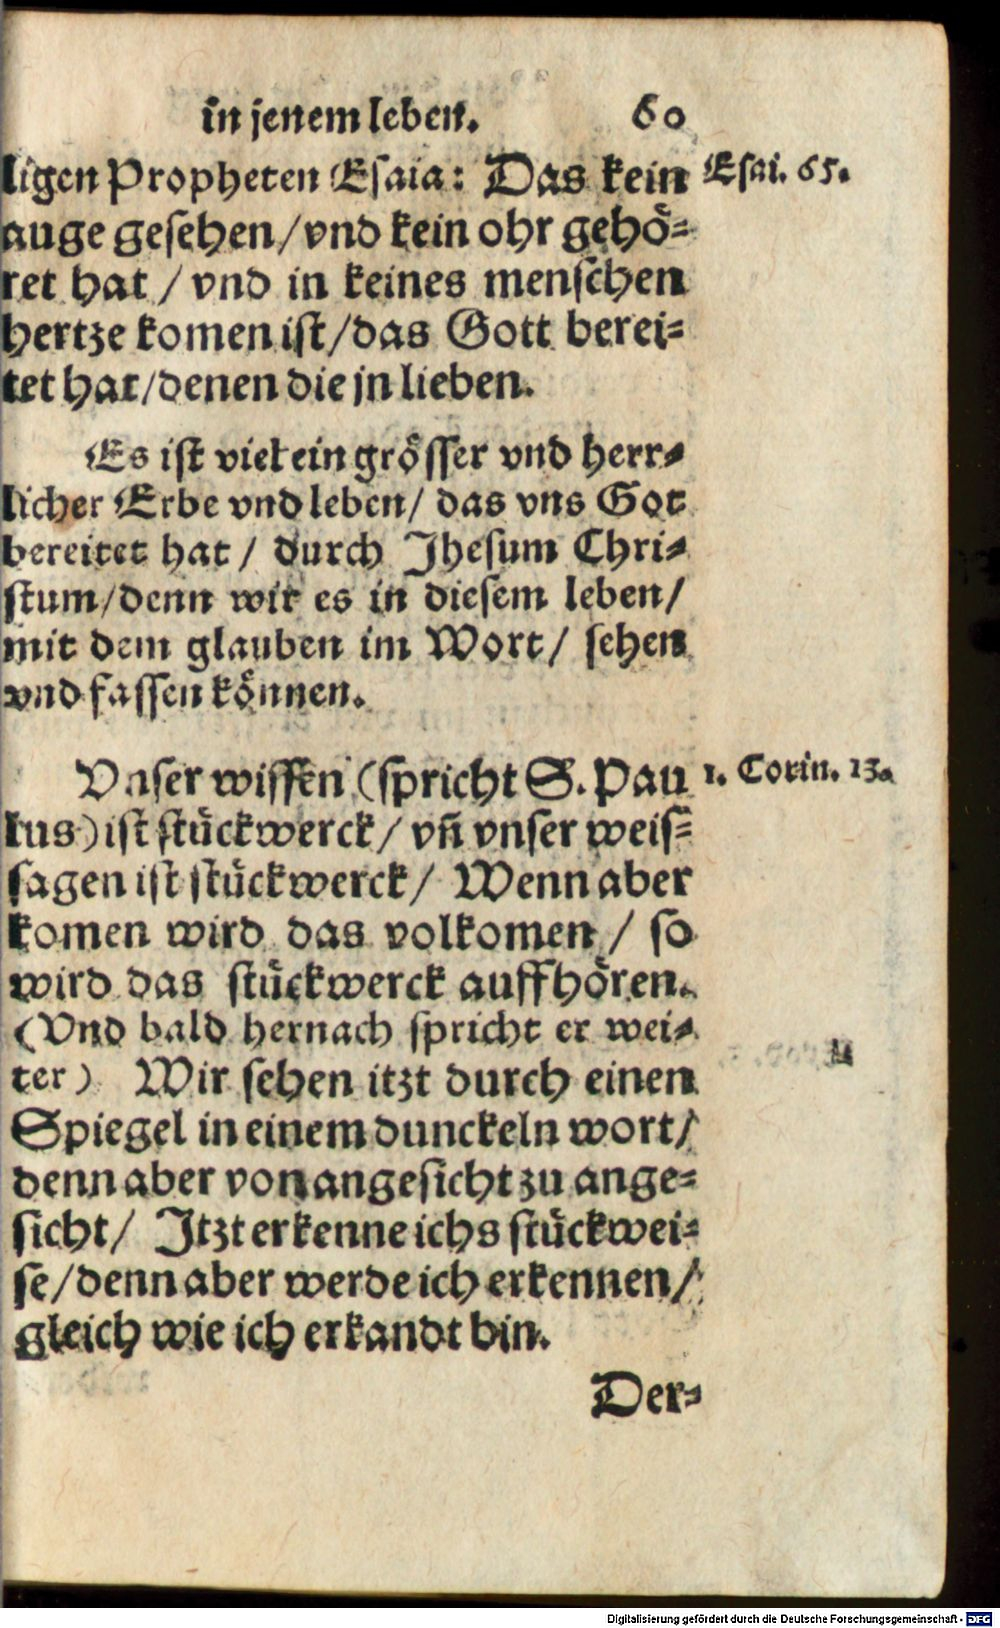 in jenem leben. 60
ligen Propheten Esaia: Das kein Esai. 65.
auge gesehen/vnd kein ohr gehö-
ret hat / vnd in keines menschen
hertze komen ist/das Gott berei-
tet hat/denen die jn lieben.
Es ist viel ein grösser vnd herr-
licher Erbe vnd leben/ das vns Got
bereitet hat / durch Jhesum Chri-
stum/denn wir es in diesem leben/
mit dem glauben im Wort/ sehen
vnd fassen können.
Vnser wissen (spricht S. Pau 1. Corin. 13.
lus) ist stückwerck/ vñ vnser weis-
sagen ist stückwerck/ Wenn aber
komen wird das volkomen / so
wird das stückwerck auffhören.
(Vnd bald hernach spricht er wei-
ter) Wir sehen itzt durch einen
Spiegel in einem dunckeln wort/
denn aber von angesicht zu ange-
sicht/ Jtzt erkenne ichs stückwei-
se/denn aber werde ich erkennen/
gleich wie ich erkandt bin.
Der-
Digitalisierung gefördert durch die Deutsche Forschungsgemeinschaft - DFG